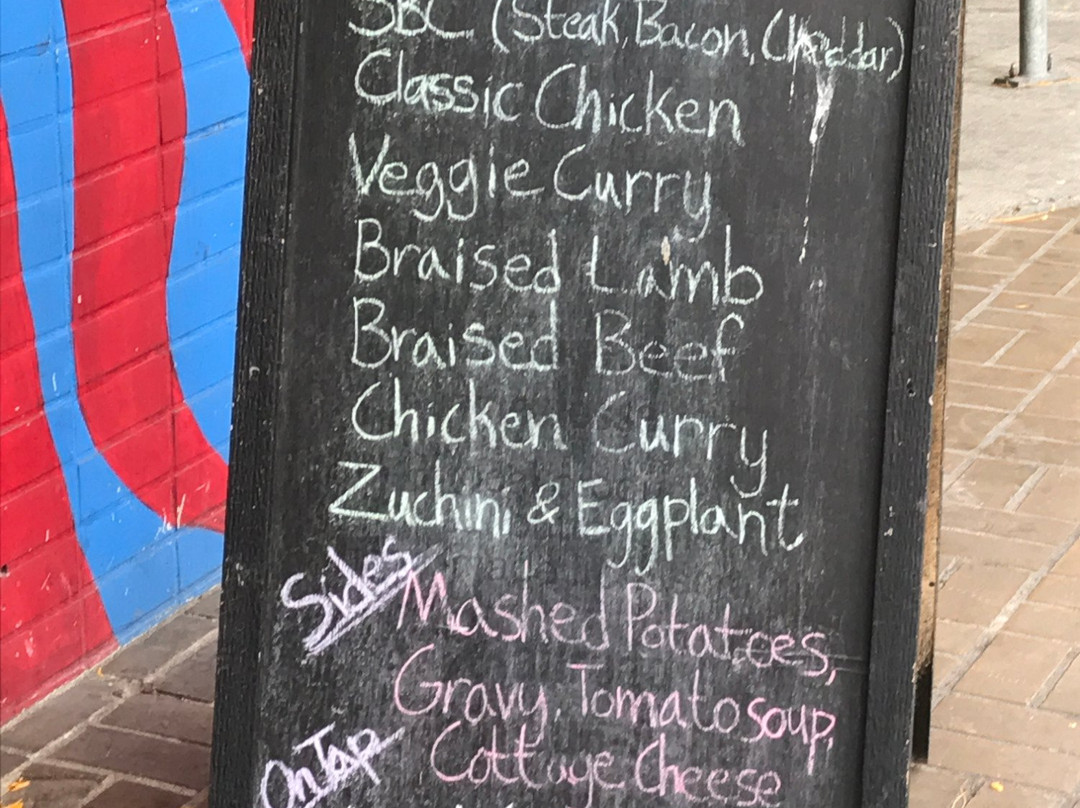 SBC (Steak, Bacon, Cheddar)
Classic Chicken
Veggie Curry
Braised Lamb
Braised Beef
Chicken Curry
Zuchini & Eggplant
Sides Mashed Potatoes,
Gravy, Tomato soup,
Cottage Cheese
On Tap